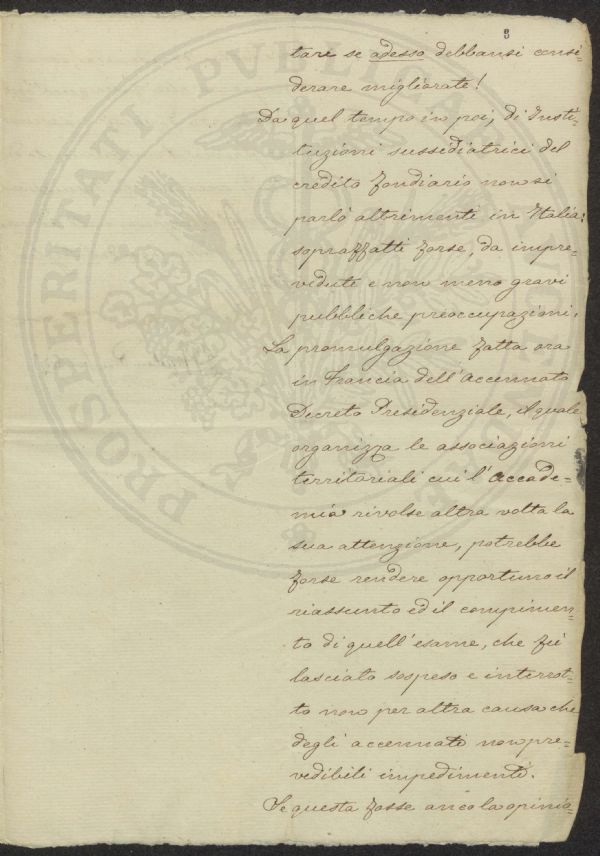 8
tare se adesso debbansi consi-
derare migliorate!
Da quel tempo in poi, di Insti-
tuzioni sussidiatrici del
credito fondiario non si
parlò altrimenti in Italia:
sopraffatti forse, da impre-
vedute e non meno gravi
pubbliche preoccupazioni.
La promulgazione fatta ora
in Francia dell'accennato
Decreto Presidenziale, il quale
organizza le associazioni
territoriali cui l'accade-
mia rivolse altra volta la
sua attenzione, potrebbe
forse rendere opportuno il
riassunto ed il compimen-
to di quell'esame, che fù
lasciato sospeso e interrot-
to non per altra causa che
degli accennati non pre-
vedibili impedimenti.
Se questa fosse anco la opinio-
PROSPERITATI PVBLICAE